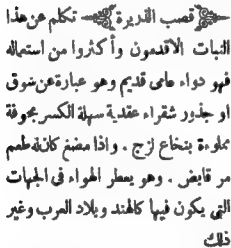 قصب الذريرة تكلم عن هذا
النبات الاقدمون وأكثروا من استعماله
فهو دواء عامى قديم وهو عبارة عن سوق
او جذور شقراء عقدية سهلة الكسر مجوفة
مملوءة بنخاع لزج . واذا مضغ كان له طعم
مر قابض . وهو يعطر الهواء فى الجهات
التى يكون فيها كالهند وبلاد العرب وغير
ذلك